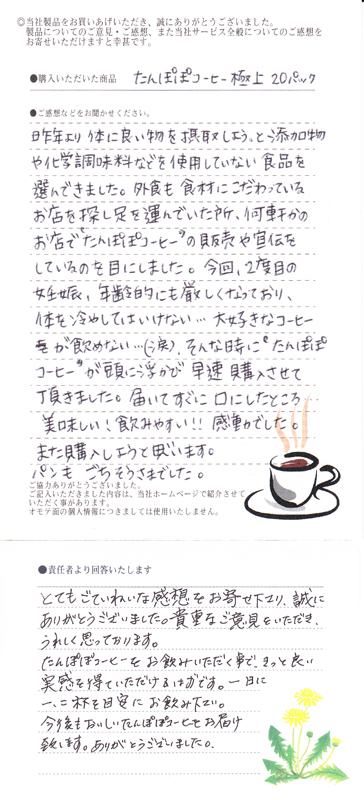 ◎当社製品をお買いあげいただき、誠にありがとうございました。
製品についてのご意見・ご感想、また当社サービス全般についてのご感想を
お寄せいただけますと幸甚です。
●購入いただいた商品 たんぽぽコーヒー極上 20パック
●ご感想などをお聞かせください。
昨年より体に良い物を摂取しようと添加物
や化学調味料などを使用していない食品を
選んできました。外食も食材にこだわっている
お店を探し足を運んでいた所、何軒かの
お店で"たんぽぽコーヒー"の販売や宣伝を
しているのを目にしました。今回、2度目の
妊娠、年齢的にも厳しくなっており、
体を冷やしてはいけない…大好きなコーヒー
が飲めない…(涙)、そんな時に"たんぽぽ
コーヒー"が頭に浮かび早速購入させて
頂きました。届いてすぐに口にしたところ…
美味しい!飲みやすい!!感動でした。
また購入しようと思います。
パンもごちそうさまでした。
ご協力ありがとうございました。
ご記入いただきました内容は、当社ホームページで紹介させて
いただく事があります。
オモテ面の個人情報につきましては使用いたしません。
●責任者より回答いたします
とてもごていねいな感想をお寄せ下さり、誠に
ありがとうございました。貴重なご意見をいただき、
うれしく思っております。
たんぽぽコーヒーをお飲みいただく事で、きっと良い
実感を得ていただけるはずです。一日に
一、二杯を目安にお飲み下さい。
今後もおいしいたんぽぽコーヒーをお届け
致します。ありがとうございました。